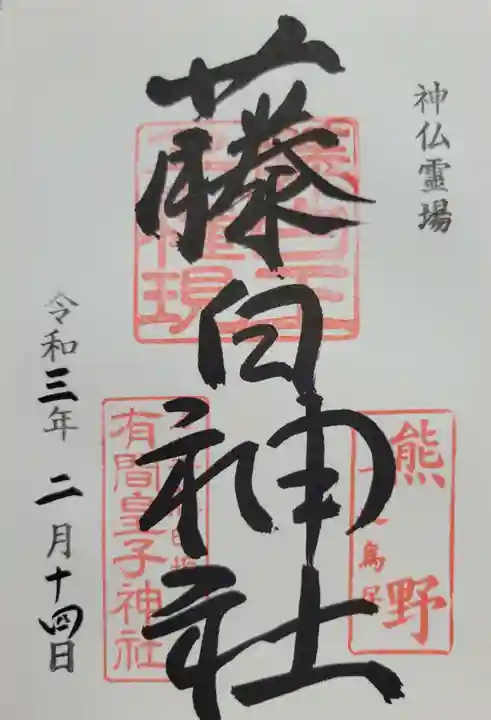 神仏霊場
熊野
藤白神社
有間皇子神社
令和三年二月十四日